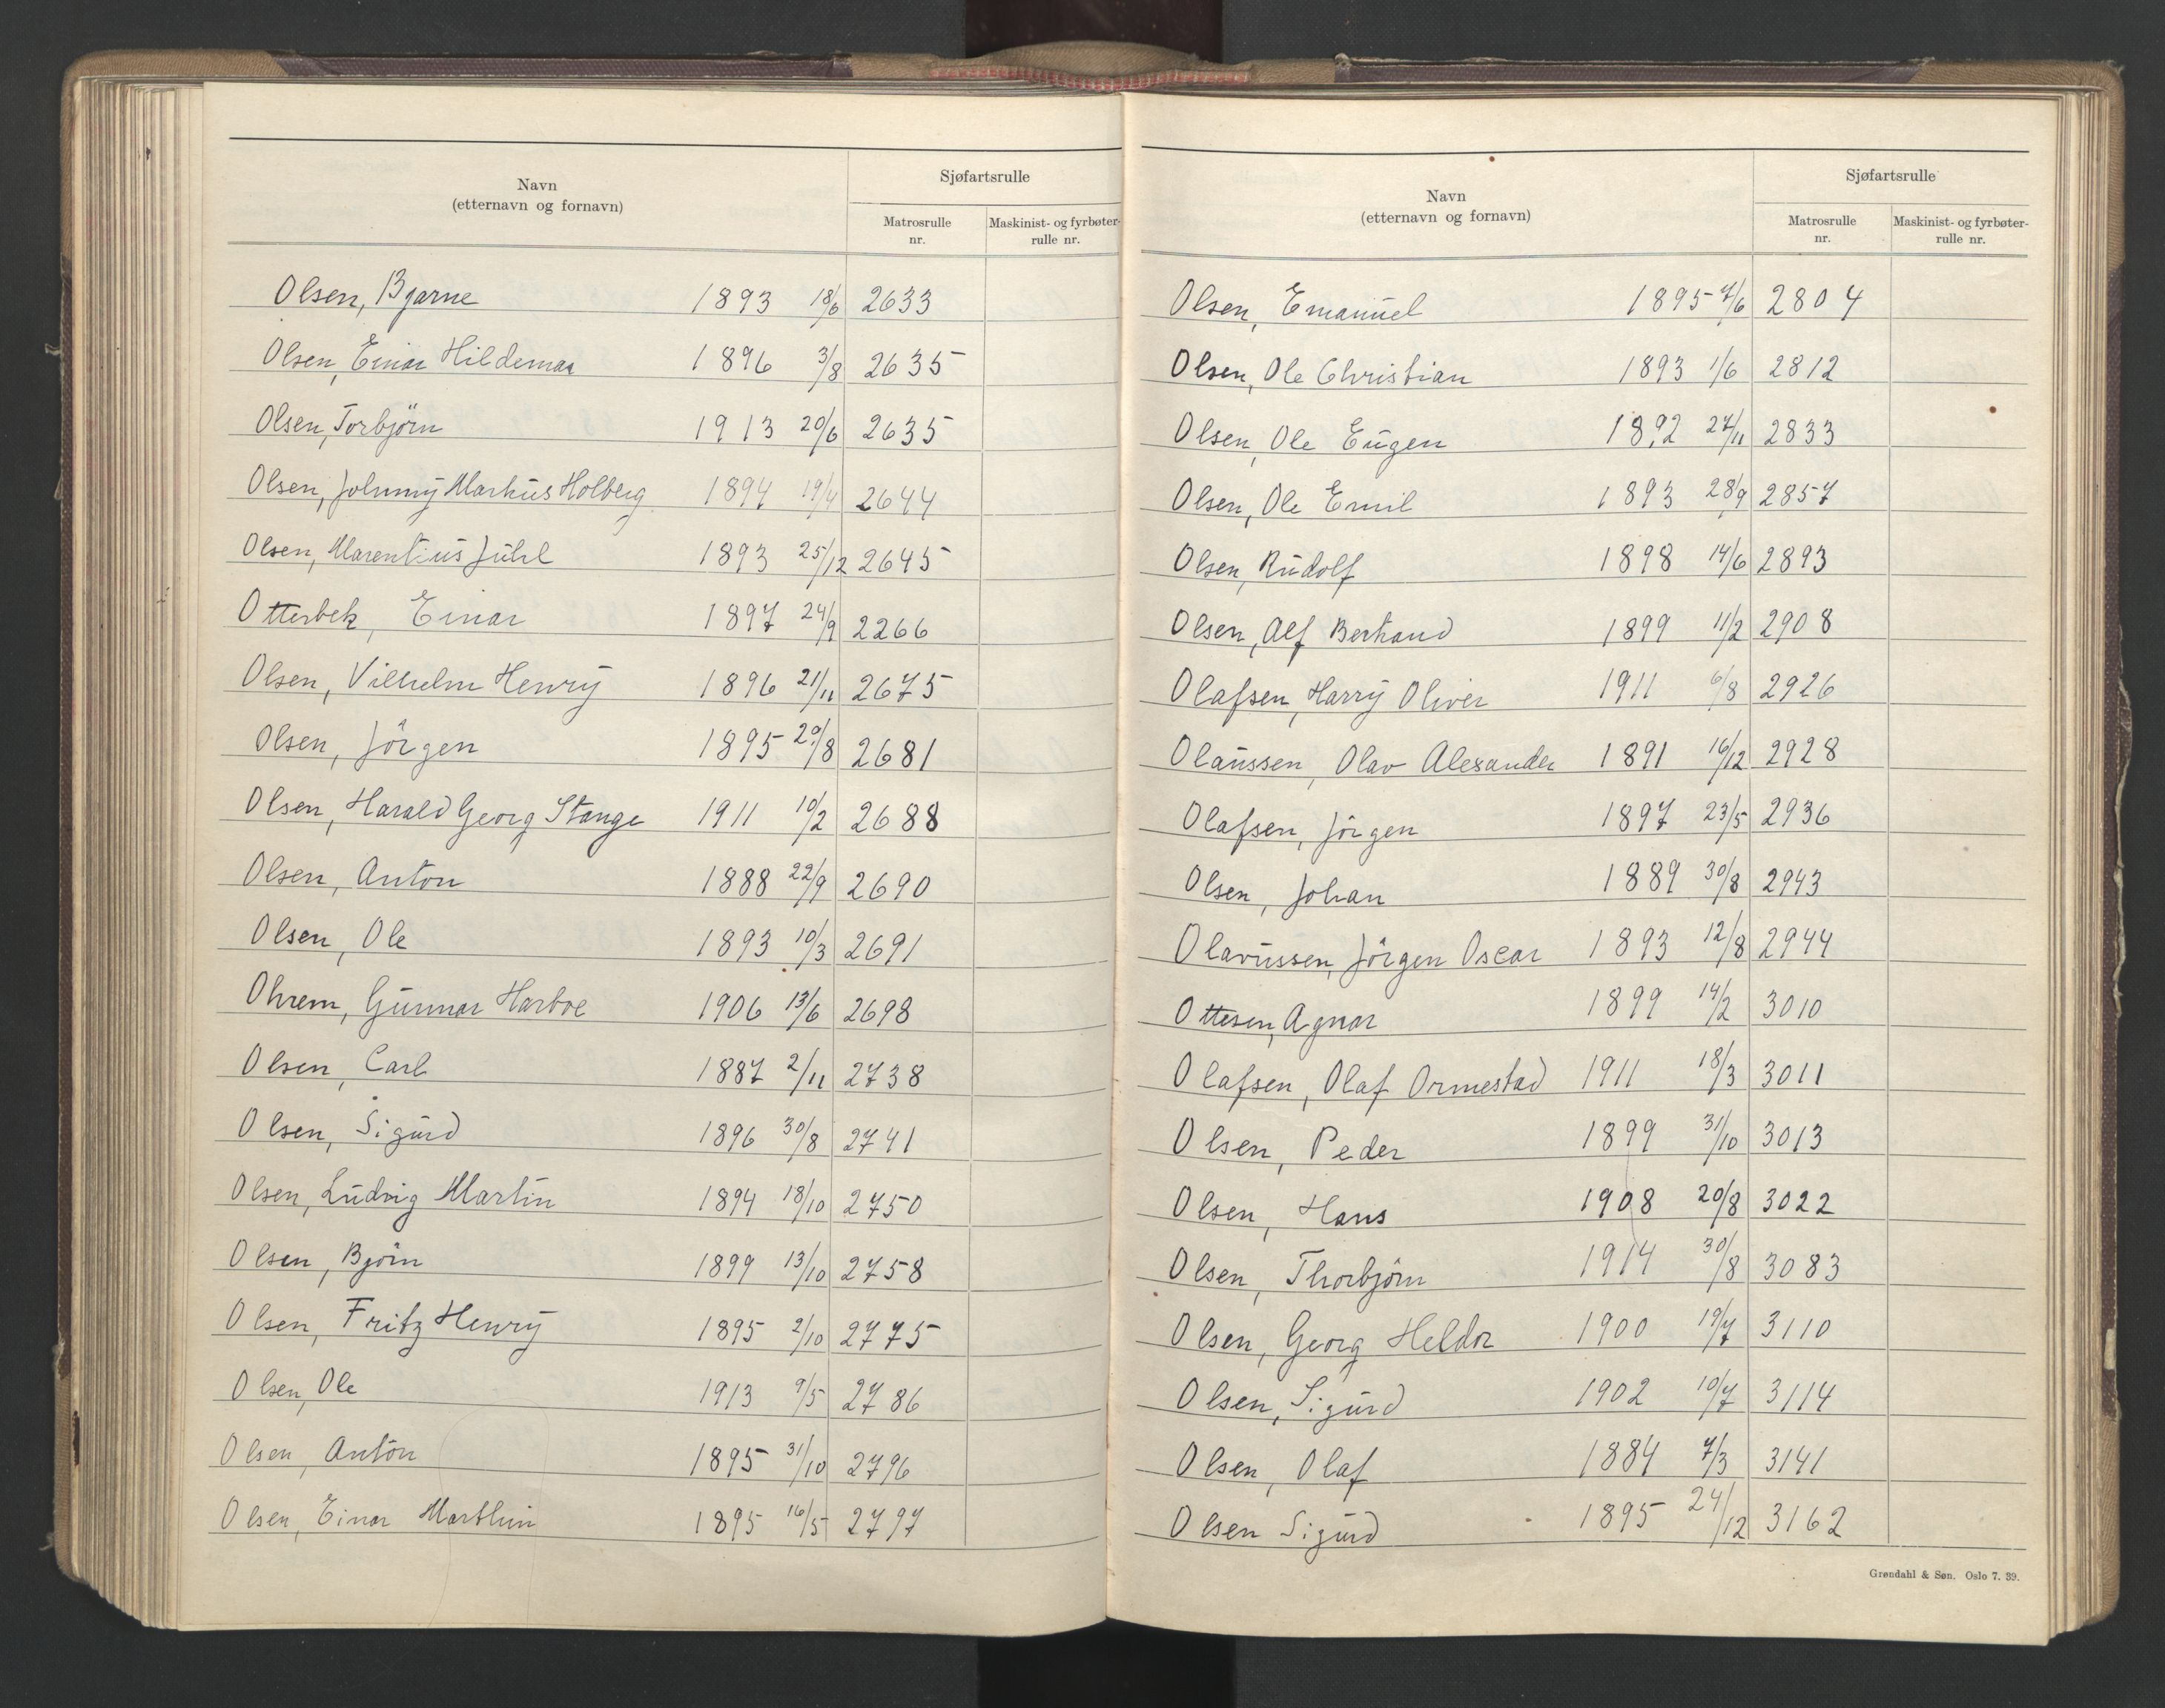 Navn
(etternavn og fornavn)
Sjøfartsrulle
Matrosrulle nr.
Maskinist- og fyrbøter-rulle nr.
Olsen, Bjarne 1893 18/6 2633
Olsen, Einar Hildemar 1896 3/8 2635
Olsen, Torbjörn 1913 20/6 2635
Olsen, Johnny Markus Holberg 1894 19/4 2644
Olsen, Marentius Juhl 1893 25/12 2645
Otterbek, Einar 1897 24/9 2266
Olsen, Vilhelm Henry 1896 21/11 2675
Olsen, Jörgen 1895 20/8 2681
Olsen, Harald Georg Stange 1911 10/2 2688
Olsen, Anton 1888 22/9 2690
Olsen, Ole 1893 10/3 2691
Ohrem, Gunnar Harboe 1906 13/6 2698
Olsen, Carl 1887 2/11 2738
Olsen, Sigurd 1896 30/8 2741
Olsen, Ludvig Martin 1894 18/10 2750
Olsen, Björn 1899 13/10 2758
Olsen, Fritz Henry 1895 2/10 2775
Olsen, Ole 1913 9/5 2786
Olsen, Anton 1895 31/10 2796
Olsen, Einar Marthin 1895 16/5 2797
Navn
(etternavn og fornavn)
Sjøfartsrulle
Matrosrulle nr.
Maskinist- og fyrbøter-rulle nr.
Olsen, Emanuel 1895 7/6 2804
Olsen, Ole Christian 1893 1/6 2812
Olsen, Ole Eugen 1892 27/11 2833
Olsen, Ole Emil 1893 28/9 2857
Olsen, Rudolf 1898 14/6 2893
Olsen, Alf Bertrand 1899 11/2 2908
Olafsen, Harry Oliver 1911 6/8 2926
Olaussen, Olav Alexander 1891 16/12 2928
Olafsen, Jörgen 1897 23/5 2936
Olsen, Johan 1889 30/8 2943
Olavussen, Jörgen Oscar 1893 12/8 2944
Ottesen, Agnar 1899 14/2 3010
Olafsen, Olaf Ormestad 1911 18/3 3011
Olsen, Peder 1899 31/10 3013
Olsen, Hans 1908 20/8 3022
Olsen, Thorbjörn 1914 30/8 3083
Olsen, Georg Heldor 1900 19/7 3110
Olsen, Sigurd 1902 10/7 3114
Olsen, Olaf 1884 7/3 3141
Olsen Sigurd 1895 24/12 3162
Grøndahl & Søn. Oslo 7. 39.